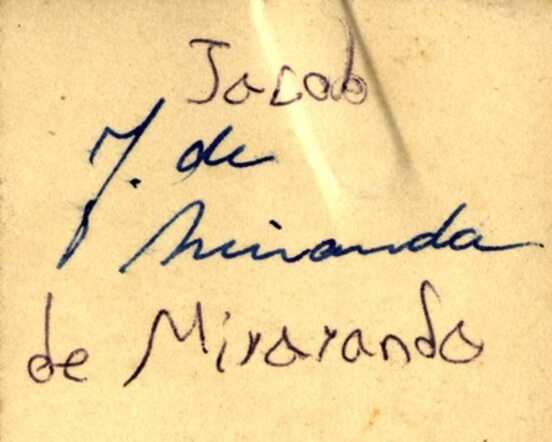 Jacob
J. de
Miranda
de Miraranda